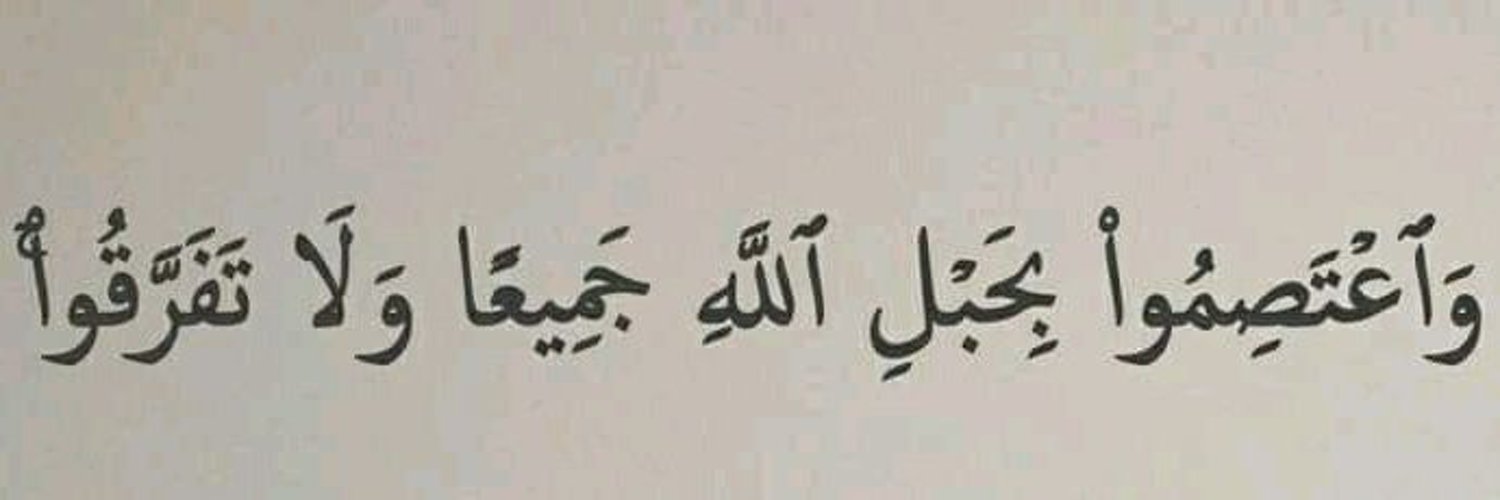 وَٱعْتَصِمُوا۟ بِحَبْلِ ٱللَّهِ جَمِيعًا وَلَا تَفَرَّقُوا۟ۚ